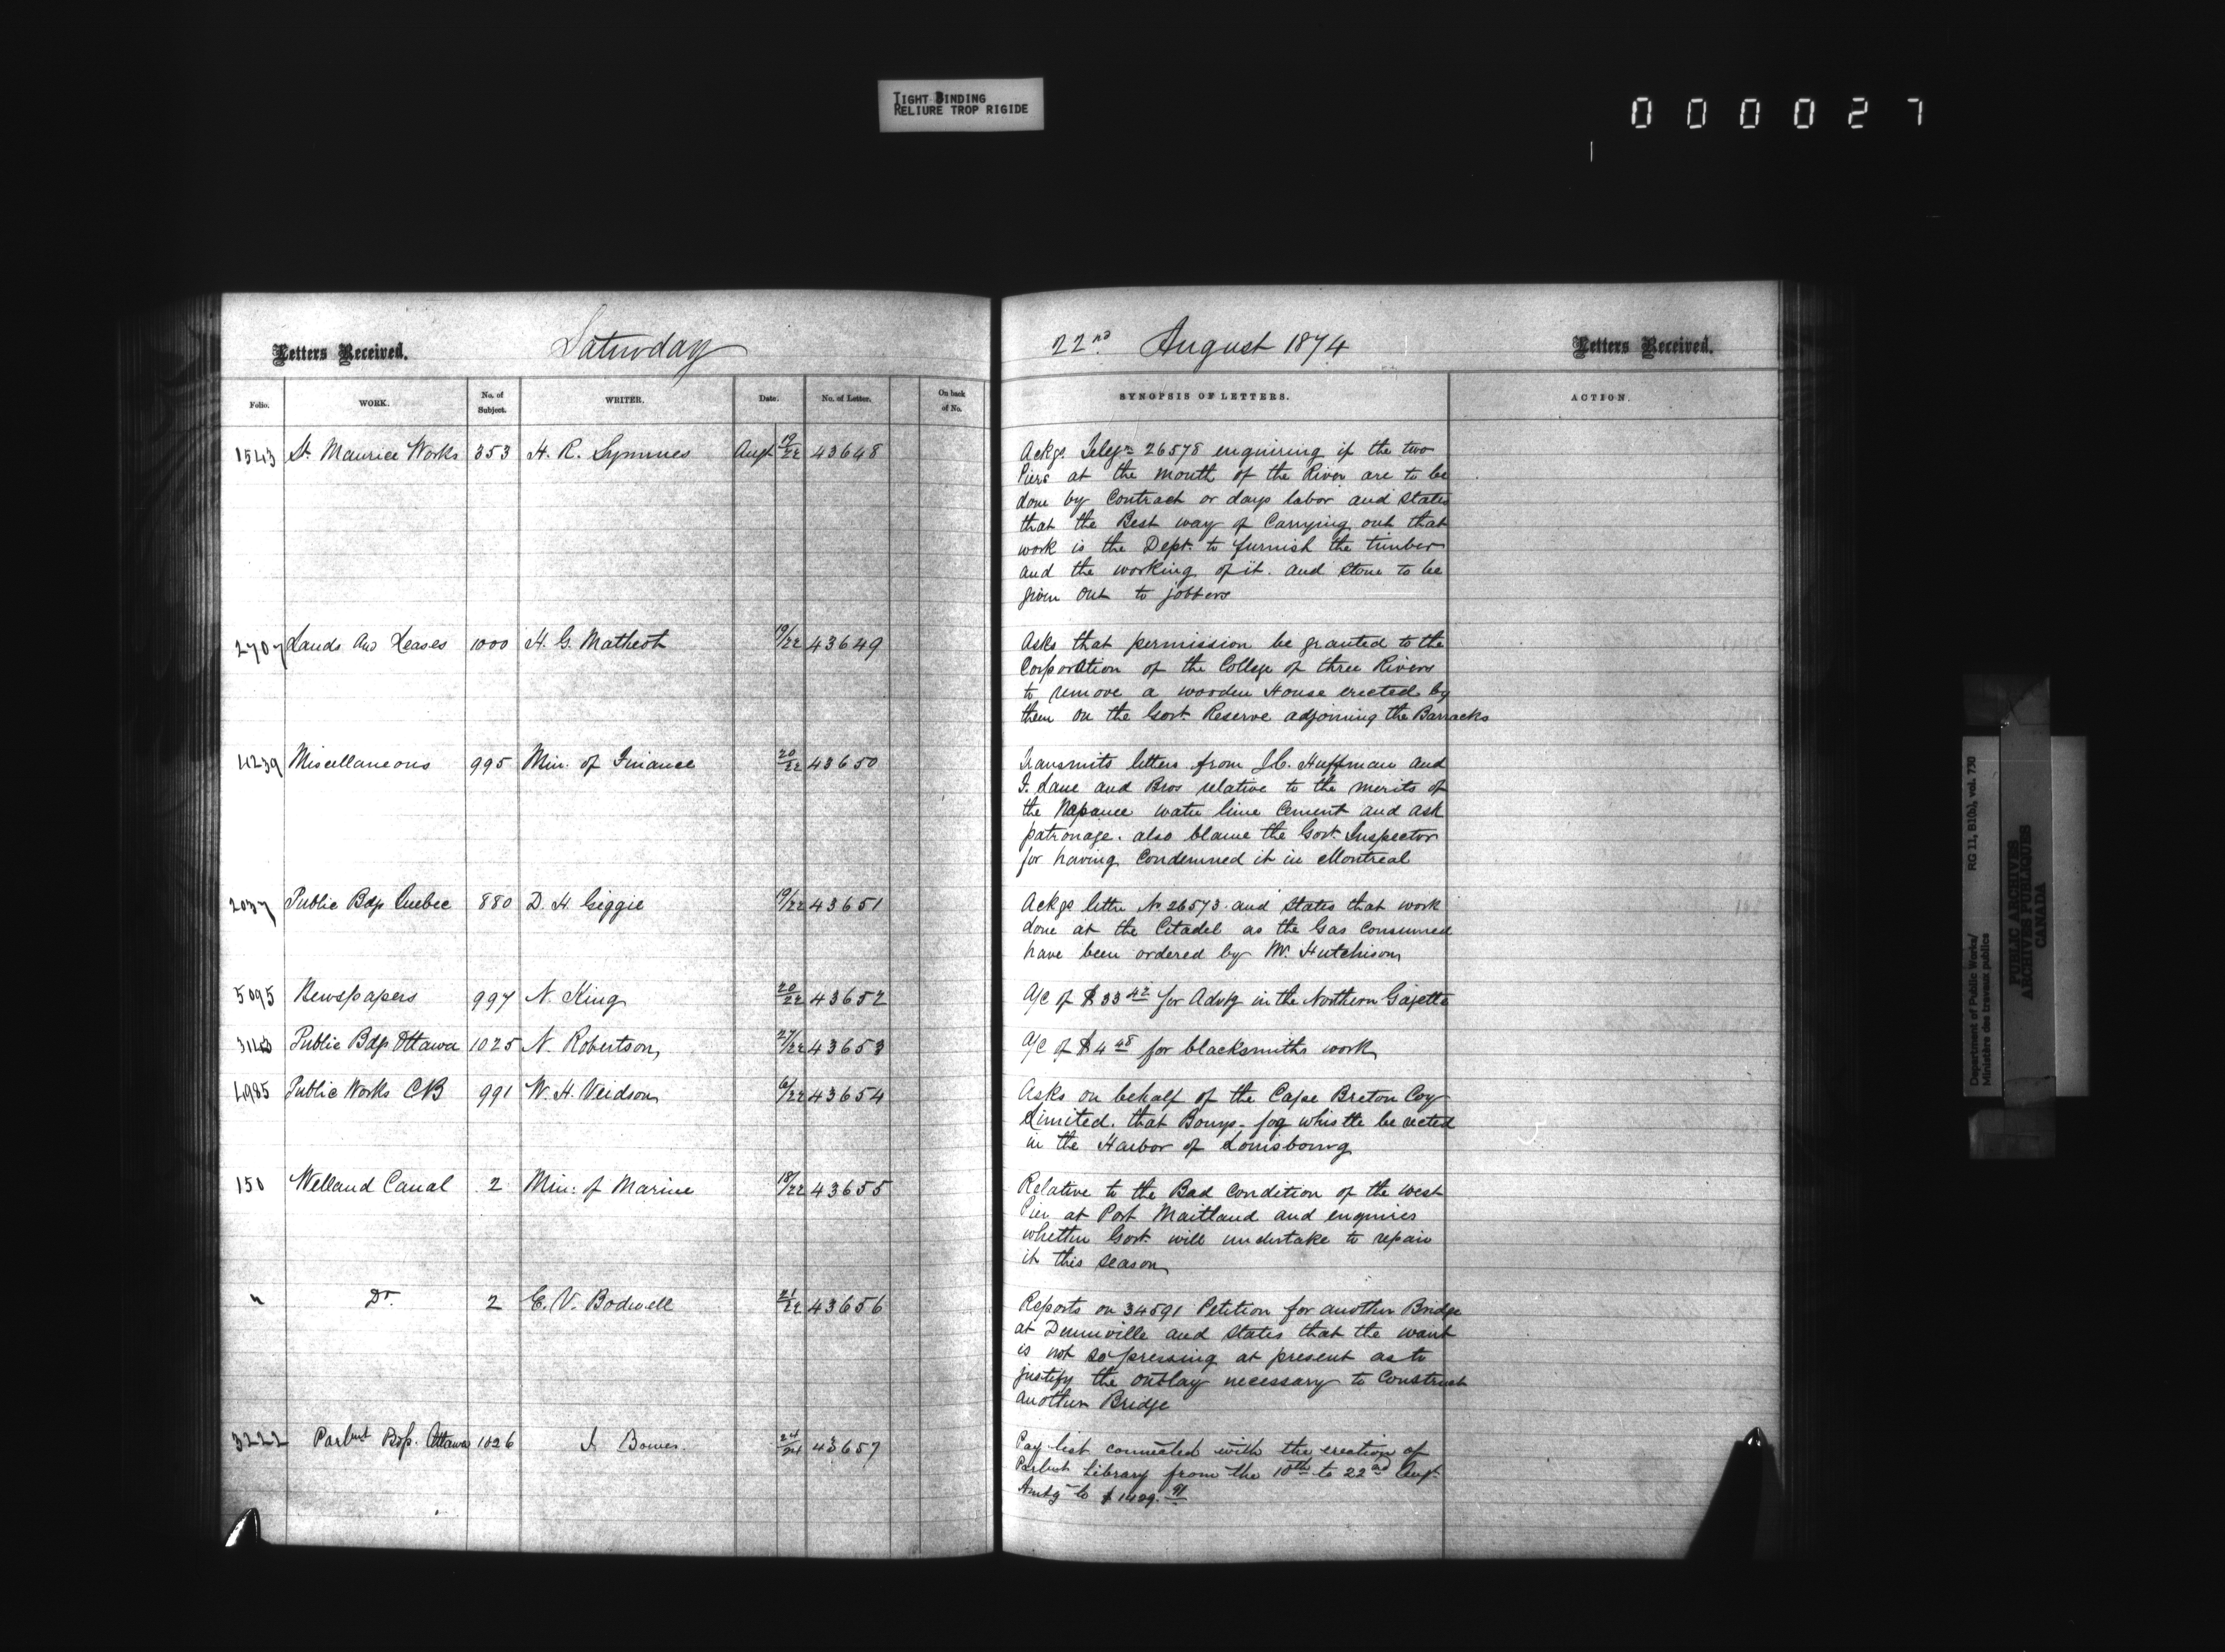 TIGHT BINDING
RELIURE TROP RIGIDE
000027
Letters Received.
Saturday
22nd August 1874
Letters Received.
Folio. WORK. No. of Subject. WRITER. Date. No. of Letter. On back of No. SYNOPSIS OF LETTERS. ACTION.
1543 St. Maurice Works 353 H. R. Symmes Augt 19/22 43648
Ackgs Telegm 26578 enquiring if the two
Piers at the mouth of the River are to be
done by Contract or days labor and states
that the Best way of Carrying out that
work is the Dept. to furnish the timber
and the working of it. and stone to be
given out to jobbers
2707 Lands and Leases 1000 H. G. Matheot 19/22 43649
Asks that permission be granted to the
Corporation of the College of three Rivers
to remove a wooden House erected by
them on the Govt. Reserve adjoining the Barracks
4239 Miscellaneous 995 Min. of Finance 20/22 43650
Transmits letters from J.C. Huffman and
I. Lane and Bros relative to the merits of
the Napanee water lime Cement and ask
patronage. also blame the Govt. Inspector
for having Condemned it in Montreal
2037 Public Bdgs Quebec 880 D. H. Geggie 19/22 43651
Ackgs letter No 26573. and states that work
done at the Citadel as the Gas Consumed
have been ordered by Mr. Hutchison
5095 Newspapers 997 N. King 20/22 43652
A/C of $33 42 for Advtg in the Northern Gazette
Public Bdgs Ottawa 1025 N. Robertson 43653
A/C of $4 48 for blacksmiths work
4985 Public Works CB 991 W. H. Weidson 6/22 43654
Asks on behalf of the Cape Breton Coy
Limited. that Bouys. fog whistle be ected
in the Harbor of Louisbourg
150 Welland Canal 2 Min. of Marine 18/22 43655
Relative to the Bad Condition of the West
Pier at Port Maitland and enquires
whether Govt. will undertake to repair
it this season
" Do. 2 E. V. Bodwell 21/22 43656
Reports on 34591 Petition for another Bridge
at Dunnville and states that the want
is not so pressing at present as to
justify the outlay necessary to Construct
another Bridge
3222 Parlmt Bdgs. Ottawa 1026 J. Bowes. 24/24 43657
Pay-list connected with the erection of
Parlmt Library from the 10th to 22nd Augt.
Amtg to $1429. 91
Department of Public Works/ RG 11, B1(b), vol. 730
Ministère des travaux publics
PUBLIC ARCHIVES
ARCHIVES PUBLIQUES
CANADA